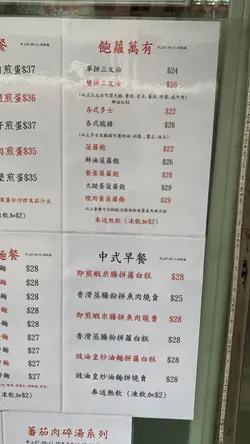 餐
肉煎蛋$37
煎蛋$36
煎蛋$35
煎蛋$35
(凍飲加$2)
飽蘿萬有
單拼三文治 $24
雙拼三文治 $26
各式多士 $22
各式脆豬 $26
菠蘿飽 $22
鮮油菠蘿飽
餐蛋菠蘿飽 $29
火腿蛋菠蘿飽 $29
煙肉蛋菠蘿飽 $29
奉送熱飲 (凍飲加$2)
麵餐
麵 $28
麵 $28
$28
$28
$28
$28
$28
$28
(凍飲加$2)
中式早餐
即煎蝦米腸拼蘿白糕 $28
香滑蒸腸粉拼魚肉燒賣 $25
即煎蝦米腸拼魚肉燒賣 $28
香滑蒸腸粉拼蘿白糕 $28
豉油皇炒油麵拼蘿白糕 $28
豉油皇炒油麵拼燒賣 $28
奉送熱飲 (凍飲加$2)
蕃茄肉碎湯系列